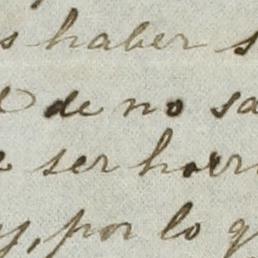 s haber s
de no sa
ser horr
y, por lo q